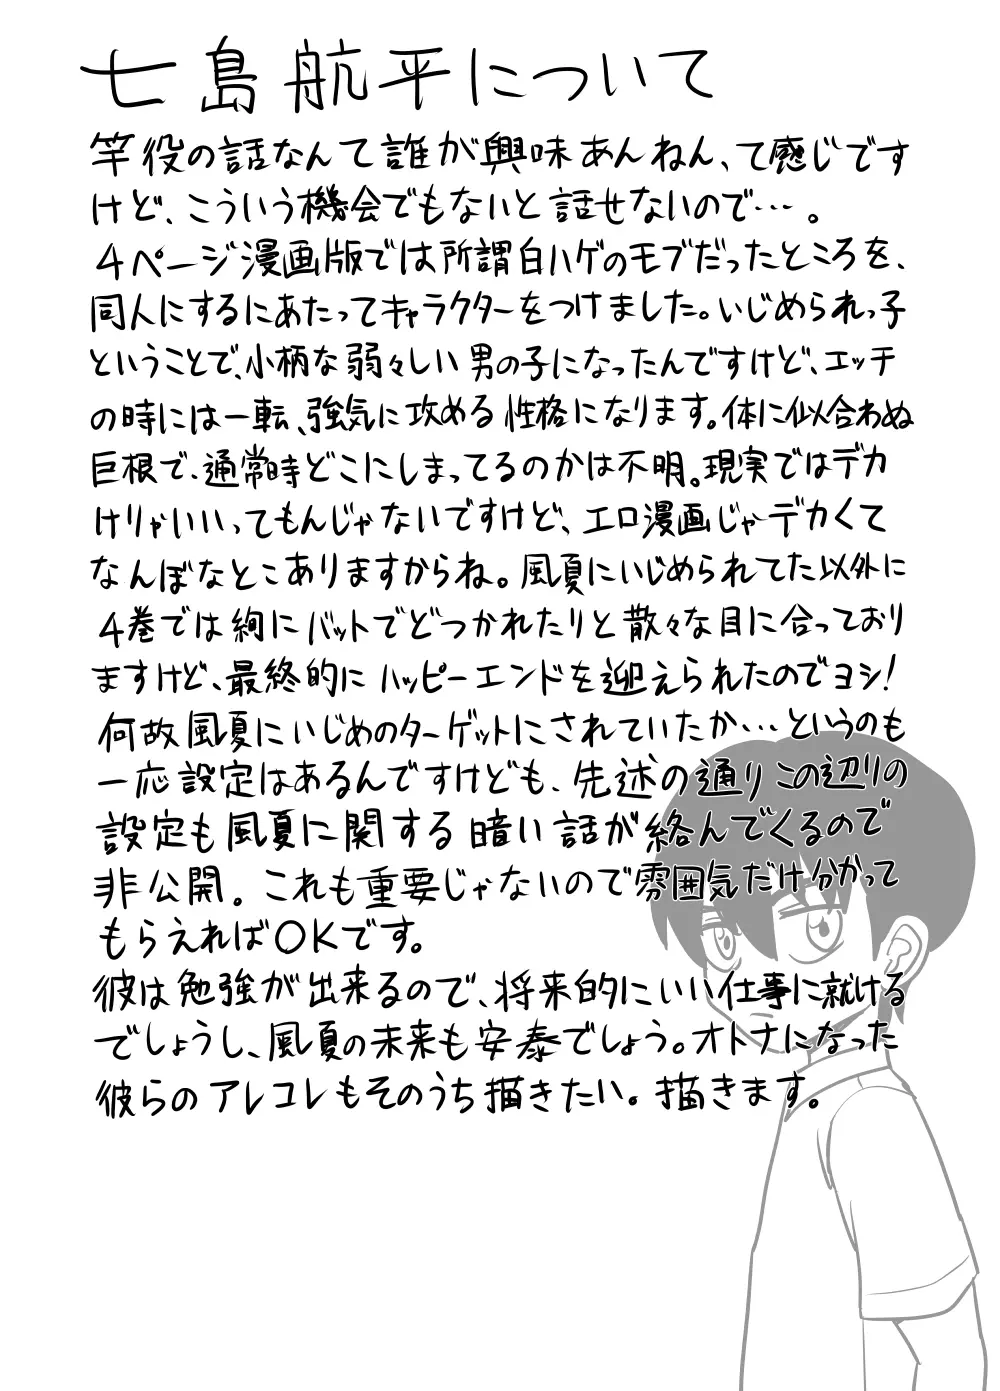 七島航平について
竿役の話なんて誰が興味あんねん、って感じです
けど、こういう機会でもないと話せないので…。
4ページ漫画版では所謂白ハゲのモブだったところを、
同人にするにあたってキャラクターをつけました。いじめられっ子
ということで、小柄な弱々しい男の子になったんですけど、エッチ
の時には一転、強気に攻める性格になります。体に似合わぬ
巨根で、通常時どこにしまってるのかは不明。現実ではデカ
けりゃいいってもんじゃないですけど、エロ漫画じゃデカくて
なんぼなとこありますからね。風夏にいじめられてた以外に
4巻では絢にバットでどつかれたりと散々な目に合っており
ますけど、最終的にハッピーエンドを迎えられたのでヨシ!
何故風夏にいじめのターゲットにされていたか…というのも
一応設定はあるんですけども、先述の通りこの辺りの
設定も風夏に関する暗い話が絡んでくるので
非公開。これも重要じゃないので雰囲気だけ分かって
もらえればOKです。
彼は勉強が出来るので、将来的にいい仕事に就ける
でしょうし、風夏の未来も安泰でしょう。オトナになった
彼らのアレコレもそのうち描きたい。描きます。